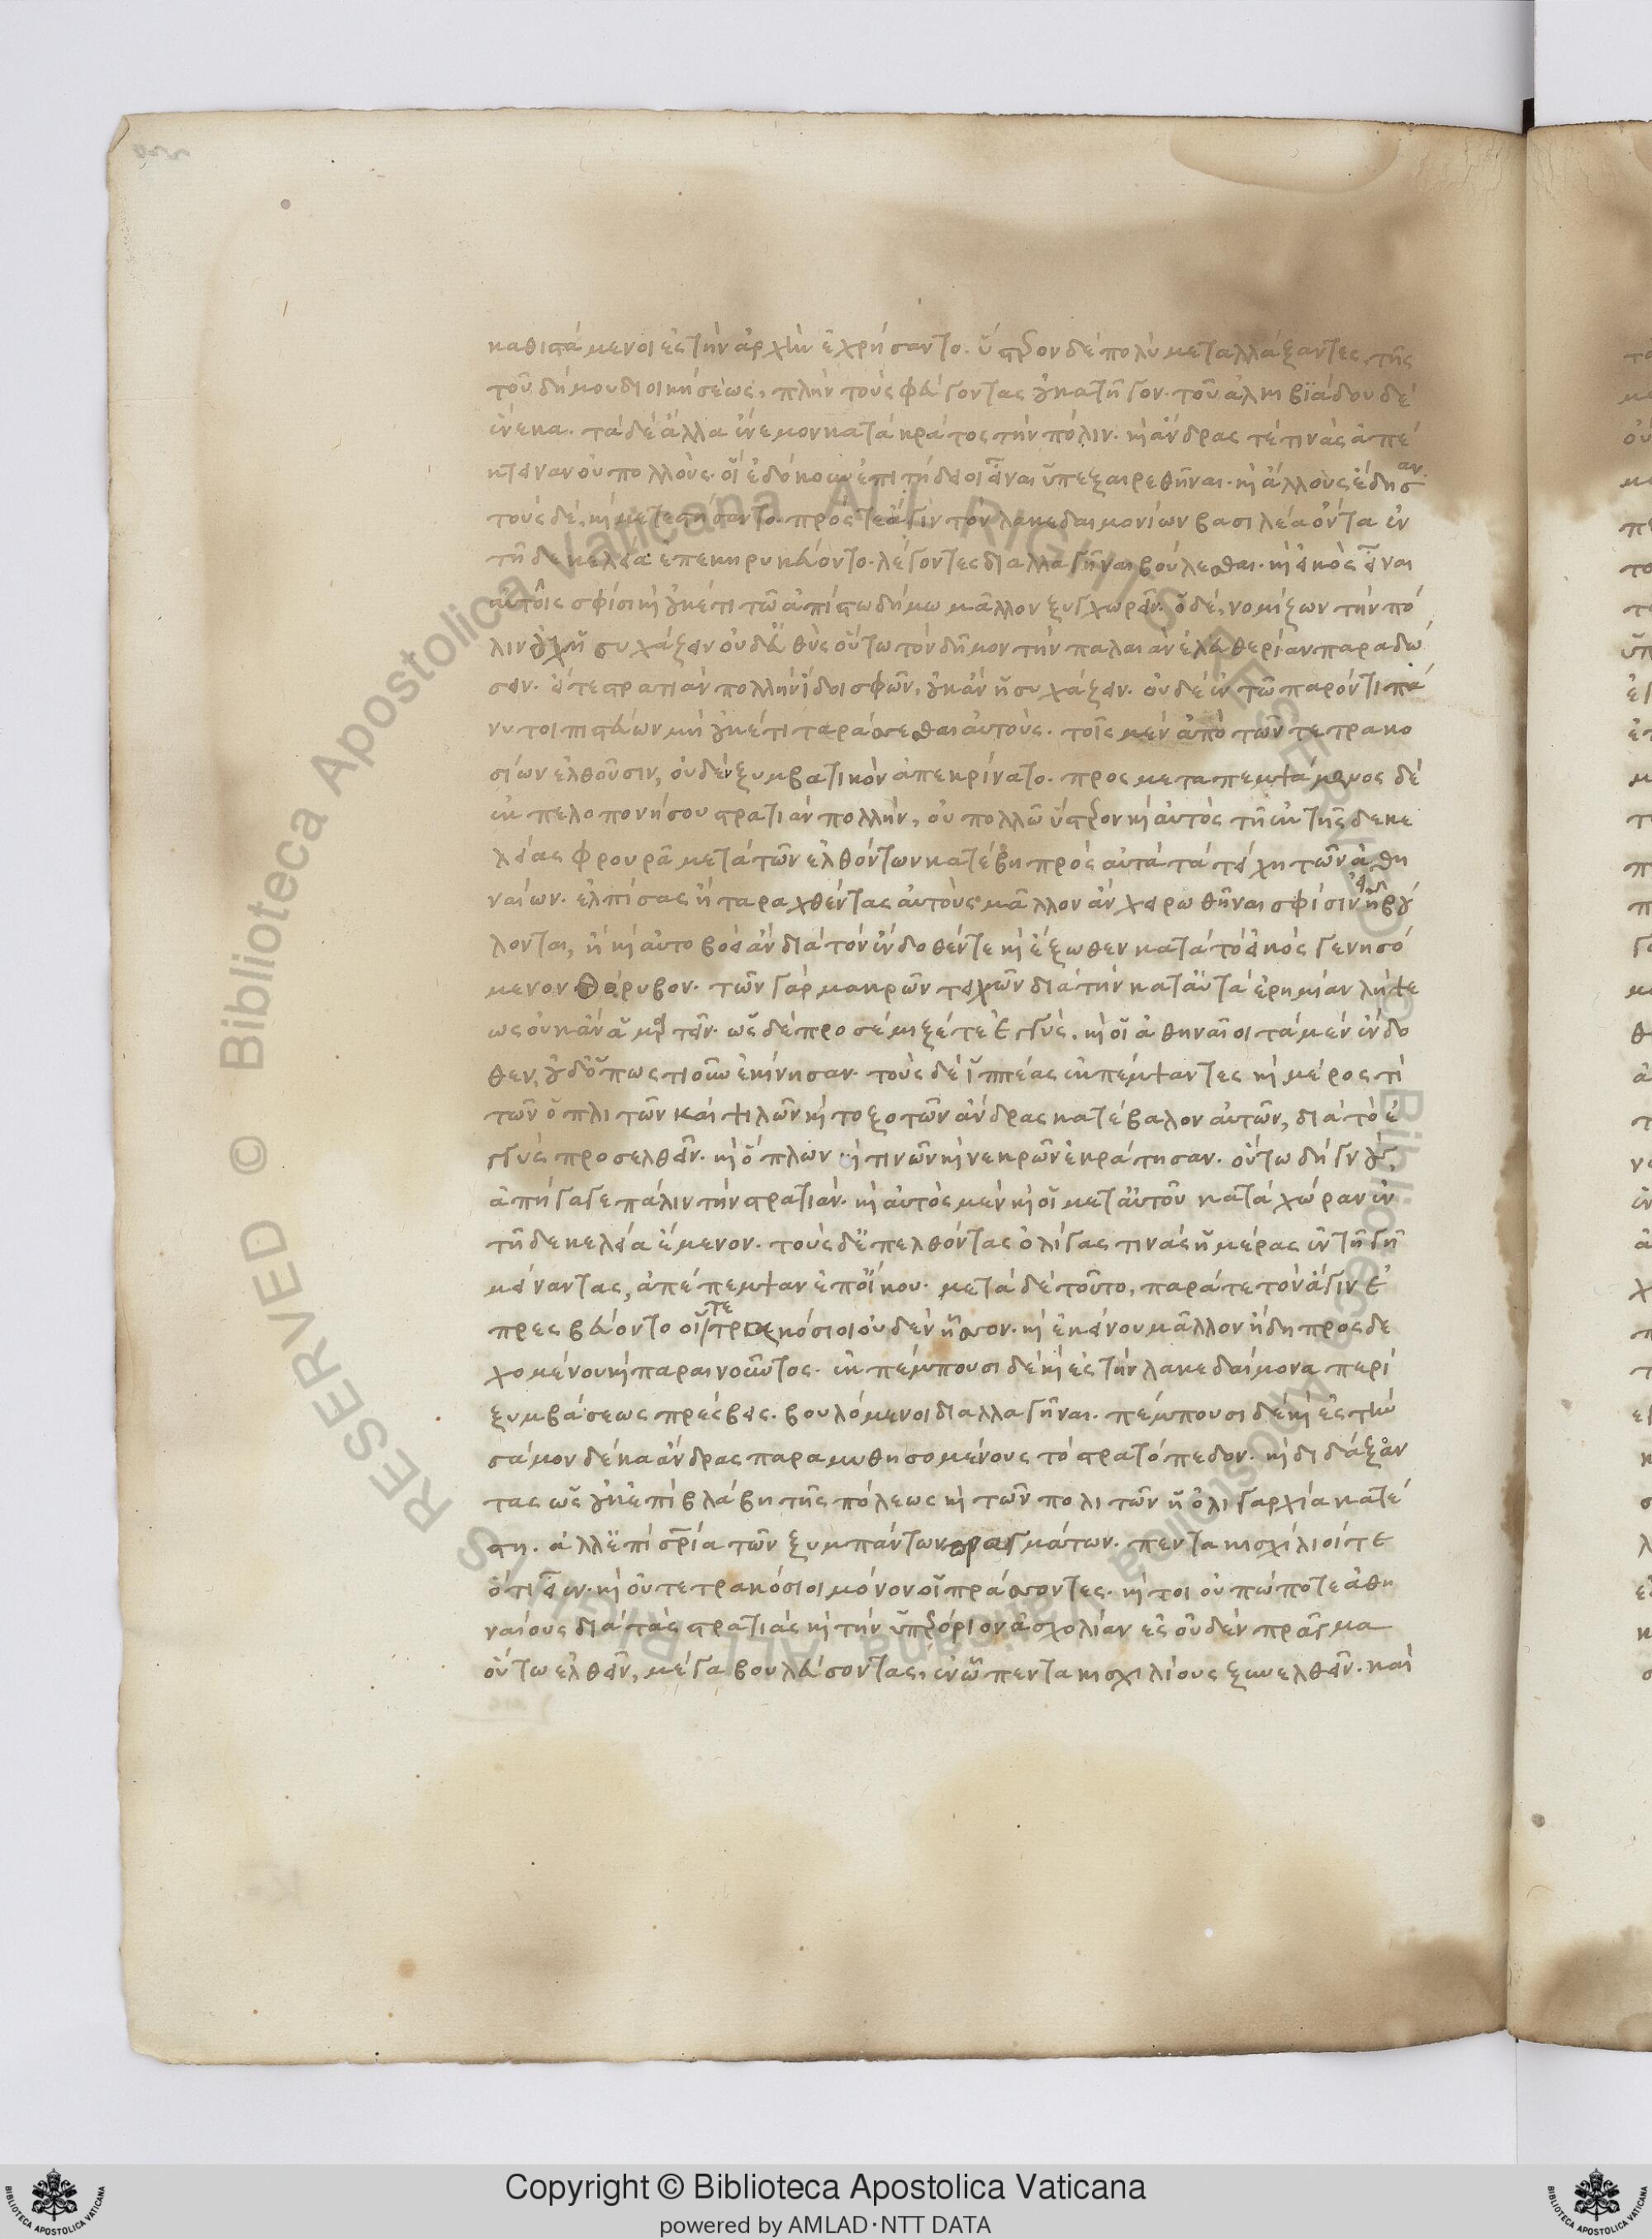 καθιστάμενοι ἐς τὴν ἀρχὴν ἐχρήσαντο. ὕστερον δὲ πολὺ μεταλλάξαντες τῆς
τοῦ δήμου διοικήσεως, πλὴν τοὺς φεύγοντας οὐ κατῆγον. τοῦ ἀλκιβϊάδου δὲ
ἕνεκα. τὰ δὲ ἄλλα ἔνεμον κατὰ κράτος τὴν πόλιν. κὶ ἄνδρας τέ τινὰς ἀπέ
κτειναν οὐ πολλούς. οἳ ἐδόκουν ἐπιτήδειοι εἶναι ὑπεξαιρεθῆναι. κὶ ἄλλους ἔδησαν.
τοὺς δὲ, κὶ μετεστήσαντο. πρός τε ἆγιν τὸν λακεδαιμονίων βασιλέα ὄντα ἐν
τῆ δεκελεία ἐπεκηρυκεύοντο. λέγοντες διαλλαγῆναι βούλεσθαι. κὶ εἰκὸς εἶναι
αὐτοῖς σφίσι κὶ οὐκέτι τῶ ἀπίστω δήμω μᾶλλον ξυγχωρεῖν. ὁ δὲ, νομίζων τὴν πό
λιν οὐχ ἡσυχάζειν οὐδ' εὐθὺς οὕτω τὸν δῆμον τὴν παλαιὰν ἐλευθερίαν παραδώ
σειν. εἴ τε στρατιὰν πολλὴν ἴδοι σφῶν, οὐκ ἂν ἡσυχάζειν. οὐδὲ ἐν τῶ παρόντι πά
νυ τοι πιστεύων μὴ οὐκέτι ταράσσεσθαι αὐτούς. τοῖς μὲν ἀπὸ τῶν τετρακο
σίων ἐλθοῦσιν, οὐδὲν ξυμβατικὸν ἀπεκρίνατο. προς μεταπεμψάμενος δὲ
ἐκ πελοπονήσου στρατιὰν πολλὴν, οὐ πολλῶ ὕστερον κὶ αὐτὸς τῆ ἐκ τῆς δεκε
λείας φρουρᾶ μετὰ τῶν ἐλθόντων κατέβη πρὸς αὐτὰ τὰ τείχη τῶν ἀθη
ναίων. ἐλπίσας ἢ ταραχθέντας αὐτοὺς μᾶλλον ἂν χειρωθῆναι σφίσιν ἧ βού
λονται, ἢ κὶ αὐτοβοεὶ ἂν διὰ τὸν ἔνδοθέν τε κὶ ἔξωθεν κατὰ τὸ εἰκὸς γενησό
μενον θόρυβον. τῶν γὰρ μακρῶν τειχῶν διὰ τὴν κατ' αὐτὰ ἐρημίαν λήψε
ως οὐκ ἂν ἁμαρτεῖν. ὡς δὲ προσέμιξέ τε ἐγγύς. κὶ οἱ ἀθηναῖοι τὰ μὲν ἔνδο
θεν, οὐδ' ὁπωστιοῦν ἐκίνησαν. τοὺς δὲ ἱππέας ἐκπέμψαντες κὶ μέρος τὶ
τῶν ὁπλιτῶν καὶ ψιλῶν κὶ τοξοτῶν ἄνδρας κατέβαλον αὐτῶν, διὰ τὸ ἐ
γγὺς προσελθεῖν. κὶ ὅπλων κὶ τινῶν κὶ νεκρῶν ἐκράτησαν. οὕτω δὴ γνούς,
ἀπήγαγε πάλιν τὴν στρατιάν. κὶ αὐτὸς μὲν κὶ οἱ μετ' αὐτοῦ κατὰ χώραν ἐν
τῆ δεκελεία ἔμενον. τοὺς δ' ἐπελθόντας ὀλίγας τινὰς ἡμέρας ἐν τῆ γῆ
μείναντας, ἀπέπεμψαν ἐπ' οἴκου. μετὰ δὲ τοῦτο, παρά τε τὸν ἆγιν ἐ
πρεσβεύοντο οἵ τε τρακόσιοι οὐδὲν ἧσσον. κὶ ἐκείνου μᾶλλον ἤδη προςδε
χομένου κὶ παραινοῦντος. ἐκπέμπουσι δὲ κὶ ἐς τὴν λακεδαίμονα περὶ
ξυμβάσεως πρέσβεις. βουλόμενοι διαλλαγῆναι. πέμπουσι δὲ κὶ ἐς τὴν
σάμον δέκα ἄνδρας παραμυθησομένους τὸ στρατόπεδον. κὶ διδάξον
τας ὡς οὐκ ἐπὶ βλάβη τῆς πόλεως κὶ τῶν πολιτῶν ἡ ὀλιγαρχία κατέ
στη. ἀλλ' ἐπὶ σωτηρία τῶν ξυμπάντων πραγμάτων. πεντακισχίλιοί τε
ὅτι εἶεν. κὶ οὐ τετρακόσιοι μόνον οἱ πράσσοντες. κὶ τοι οὐ πώποτε ἀθη
ναίους διὰ τὰς στρατιὰς κὶ τὴν ὑπερόριον ἀσχολίαν ἐς οὐδὲν πρᾶγμα
οὕτω ἐλθεῖν, μέγα βουλεύσοντας, ἐν ὧ πεντακισχιλίους ξυνελθεῖν. καὶ